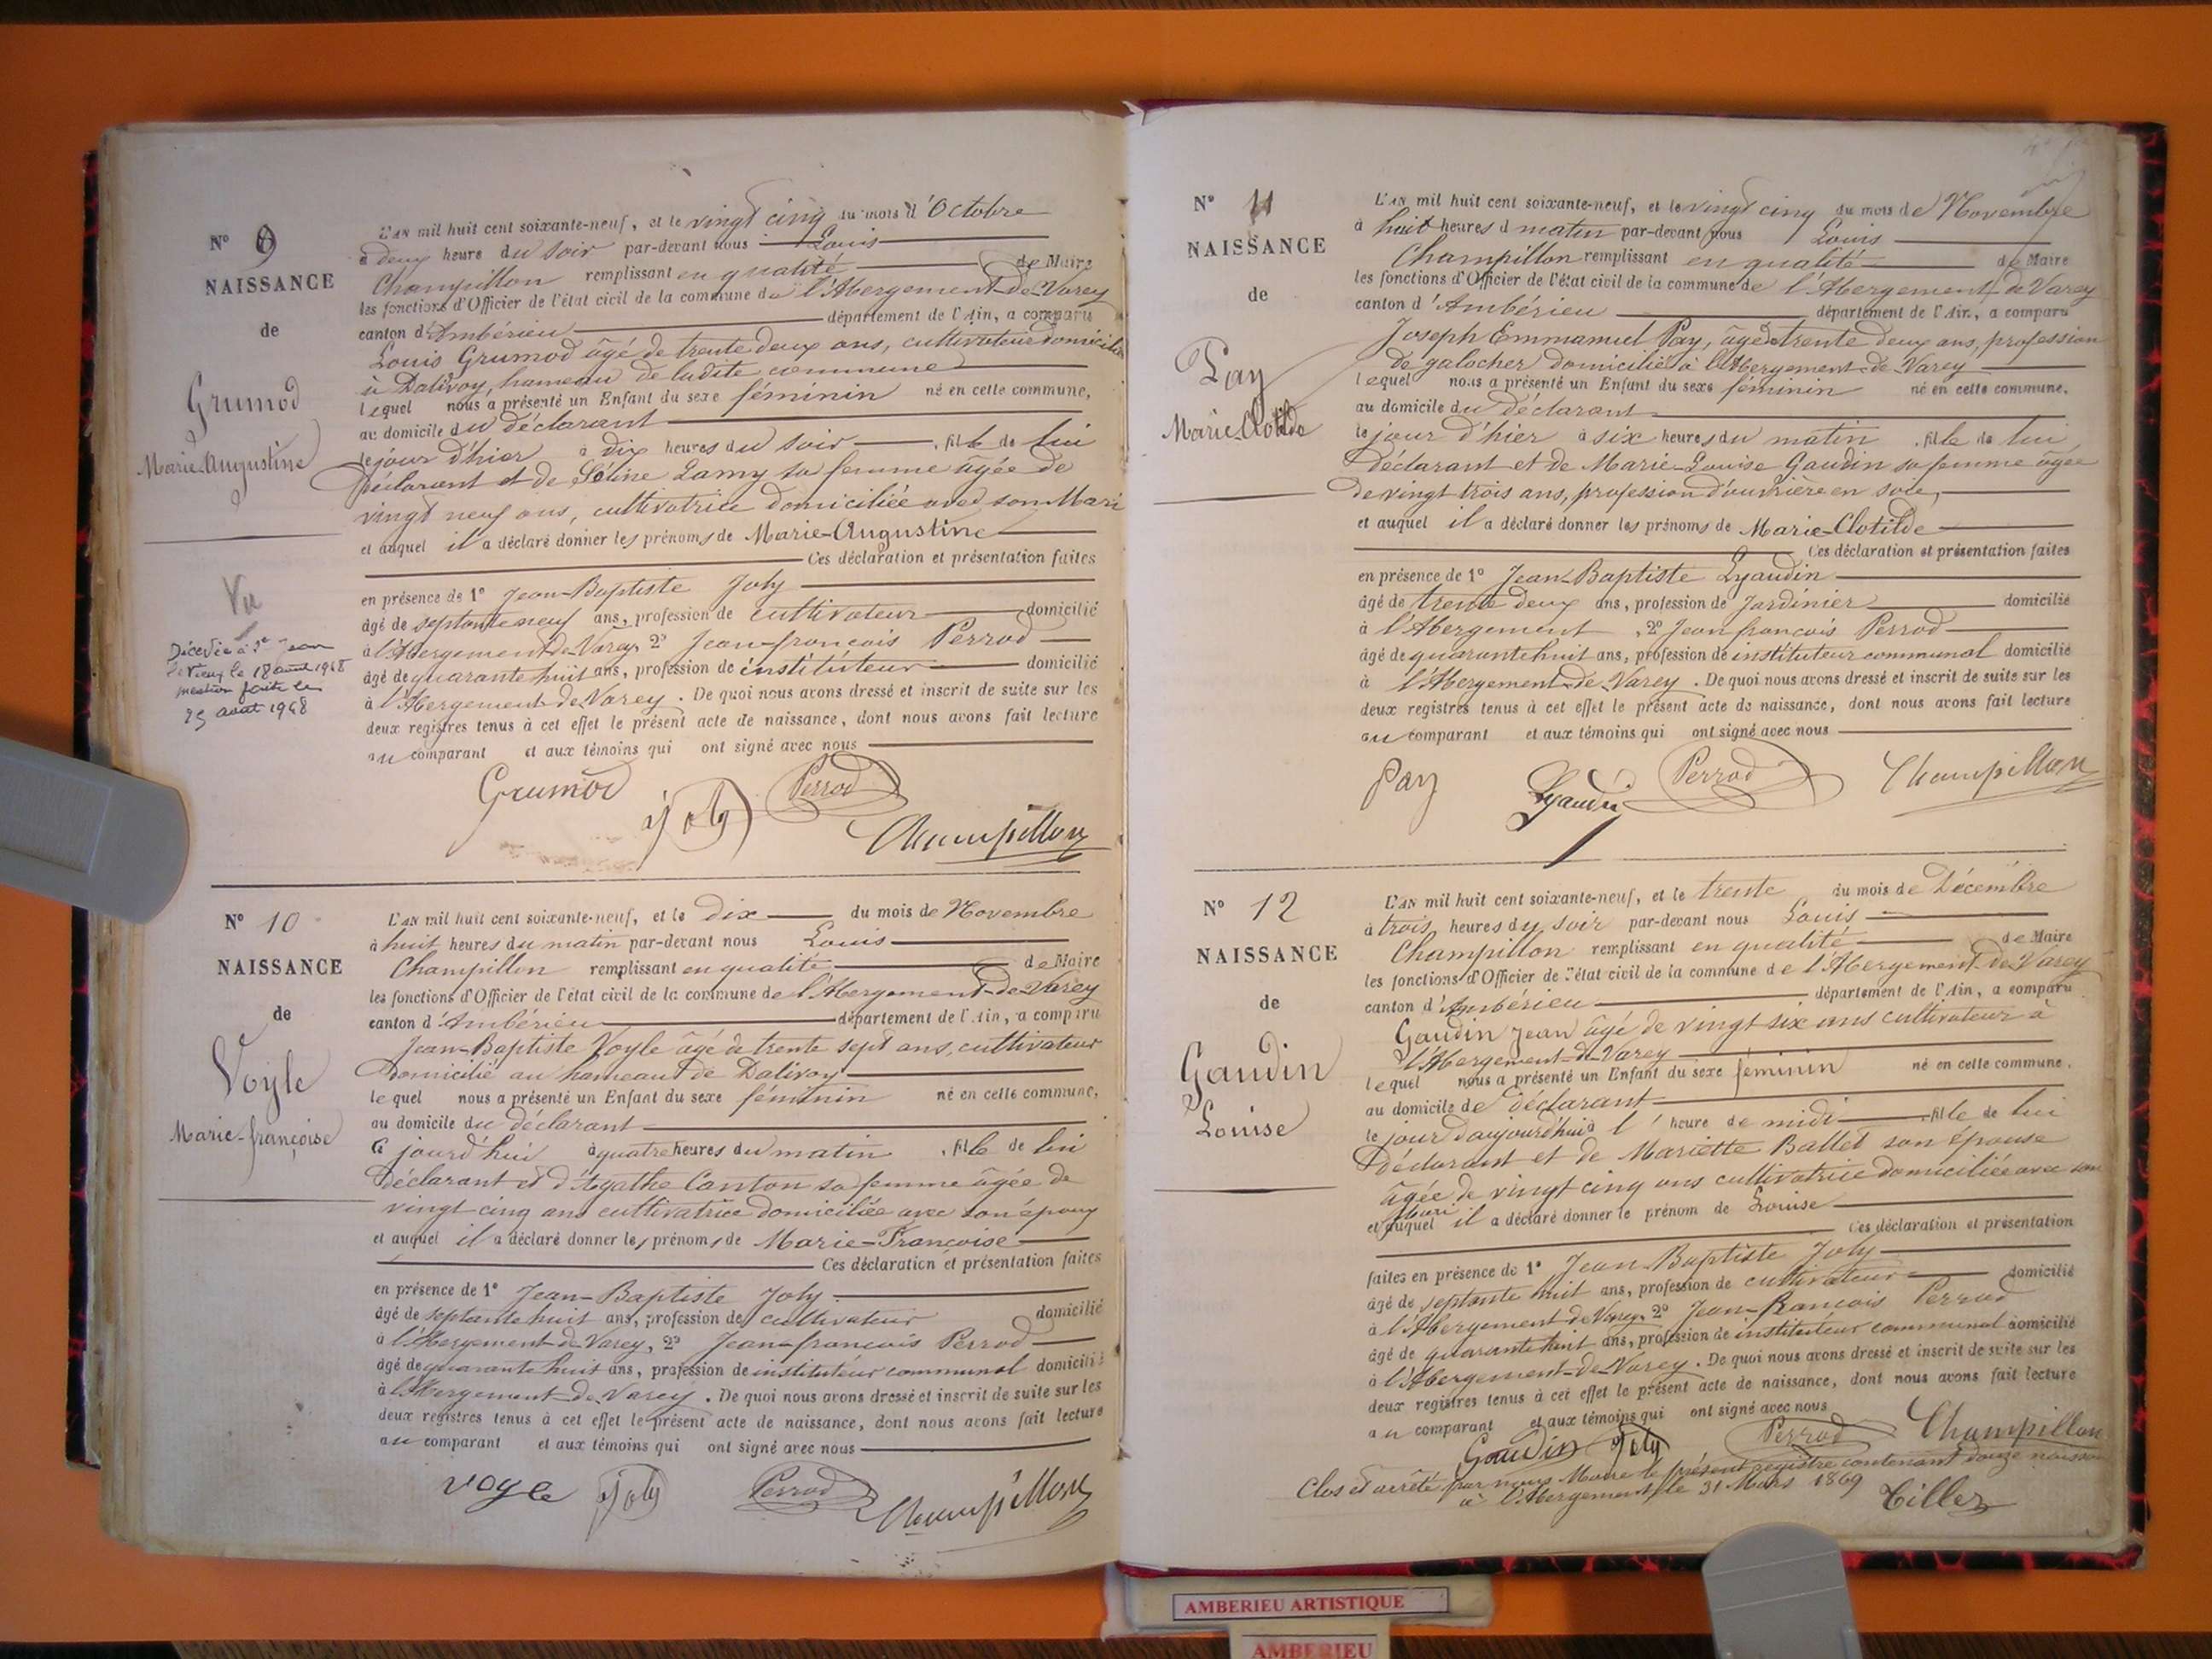 N° 9
NAISSANCE
de
Grumod
Marie-Augustine
Vu
Décédée à St Jean
le Vieux le 18 août 1948
mention faite le
25 août 1948
L'AN mil huit cent soixante-neuf, et le vingt cinq du mois d'Octobre
à deux heure du soir par-devant nous Louis
Champillon remplissant en qualité de Maire
les fonctions d'Officier de l'état civil de la commune de l'Abergement-de-Varey
canton d'Ambérieu département de l'Ain, a comparu
Louis Grumod âgé de trente deux ans, cultivateur domicilié
à Dalivoy, hameau de ladite commune
lequel nous a présenté un Enfant du sexe féminin né en cette commune,
au domicile du déclarant
le jour d'hier à dix heures du soir , fille de lui
déclarant et de Séline Lamy sa femme âgée de
vingt neuf ans, cultivatrice domiciliée avec son Mari
et auquel il a déclaré donner les prénoms de Marie-Augustine
Ces déclaration et présentation faites
en présence de 1° Jean-Baptiste Joly
âgé de septante neuf ans, profession de cultivateur domicilié
à l'Abergement-de-Varey, 2° Jean-françois Perrod
âgé de quarante huit ans, profession de instituteur domicilié
à l'Abergement-de-Varey. De quoi nous avons dressé et inscrit de suite sur les
deux registres tenus à cet effet le présent acte de naissance, dont nous avons fait lecture
au comparant et aux témoins qui ont signé avec nous
Grumod
Joly
Perrod
Champillon
N° 10
NAISSANCE
de
Voyle
Marie-françoise
L'AN mil huit cent soixante-neuf, et le dix du mois de Novembre
à huit heures du matin par-devant nous Louis
Champillon remplissant en qualité de Maire
les fonctions d'Officier de l'état civil de la commune de l'Abergement-de-Varey
canton d'Ambérieu département de l'Ain, a comparu
Jean-Baptiste Voyle âgé de trente sept ans, cultivateur
domicilié au hameau de Dalivoy
lequel nous a présenté un Enfant du sexe féminin né en cette commune,
au domicile du déclarant
ce jourd'hui à quatre heures du matin , fille de lui
déclarant et d'Agathe Canton sa femme âgée de
vingt cinq ans cultivatrice domiciliée avec son époux
et auquel il a déclaré donner les prénoms de Marie-Françoise
Ces déclaration et présentation faites
en présence de 1° Jean-Baptiste Joly
âgé de septante huit ans, profession de cultivateur domicilié
à l'Abergement-de-Varey, 2° Jean-françois Perrod
âgé de quarante huit ans, profession de instituteur communal domicilié
à l'Abergement-de-Varey. De quoi nous avons dressé et inscrit de suite sur les
deux registres tenus à cet effet le présent acte de naissance, dont nous avons fait lecture
au comparant et aux témoins qui ont signé avec nous
Voyle Joly Perrod Champillon
N° 11
NAISSANCE
de
Pay
Marie-Clotilde
L'AN mil huit cent soixante-neuf, et le vingt cinq du mois de Novembre
à huit heures d matin par-devant nous Louis
Champillon remplissant en qualité de Maire
les fonctions d'Officier de l'état civil de la commune de l'Abergement-de-Varey
canton d'Ambérieu département de l'Ain, a comparu
Joseph Emmanuel Pay, âgé de trente deux ans, profession
de galocher domicilié à l'Abergement-de-Varey
lequel nous a présenté un Enfant du sexe féminin né en cette commune,
au domicile du déclarant
le jour d'hier à six heures du matin , fille de lui
déclarant et de Marie-Louise Gaudin sa femme âgée
de vingt trois ans, profession d'ouvrière en soie,
et auquel il a déclaré donner les prénoms de Marie-Clotilde
Ces déclaration et présentation faites
en présence de 1° Jean-Baptiste Lyaudin
âgé de trente deux ans, profession de Jardinier domicilié
à l'Abergement , 2° Jean françois Perrod
âgé de quarante huit ans, profession de instituteur communal domicilié
à l'Abergement-de-Varey. De quoi nous avons dressé et inscrit de suite sur les
deux registres tenus à cet effet le présent acte de naissance, dont nous avons fait lecture
au comparant et aux témoins qui ont signé avec nous
Pay Lyaudin Perrod Champillon
N° 12
NAISSANCE
de
Gaudin
Louise
L'AN mil huit cent soixante-neuf, et le trente du mois de Décembre
à trois heures du soir par-devant nous Louis
Champillon remplissant en qualité de Maire
les fonctions d'Officier de l'état civil de la commune de l'Abergement-de-Varey
canton d'Ambérieu département de l'Ain, a comparu
Gaudin Jean âgé de vingt six ans cultivateur à
l'Abergement-de-Varey
lequel nous a présenté un Enfant du sexe féminin né en cette commune,
au domicile de déclarant
le jour d'aujourd'hui à l'heure de midi , fille de lui
déclarant et de Mariette Ballet son épouse
âgée de vingt cinq ans cultivatrice domiciliée avec son
Mari
et auquel il a déclaré donner le prénom de Louise
Ces déclaration et présentation
faites en présence de 1° Jean Baptiste Joly
âgé de septante huit ans, profession de cultivateur domicilié
à l'Abergement-de-Varey, 2° Jean-françois Perrod
âgé de quarante huit ans, profession de instituteur communal domicilié
à l'Abergement-de-Varey. De quoi nous avons dressé et inscrit de suite sur les
deux registres tenus à cet effet le présent acte de naissance, dont nous avons fait lecture
au comparant et aux témoins qui ont signé avec nous
Gaudin Joly Perrod Champillon
Clos et arrêté par nous Maire le présent registre contenant douze
à l'Abergement le 31 Mars 1869 Tiller
AMBERIEU ARTISTIQUE
AMBERIEU